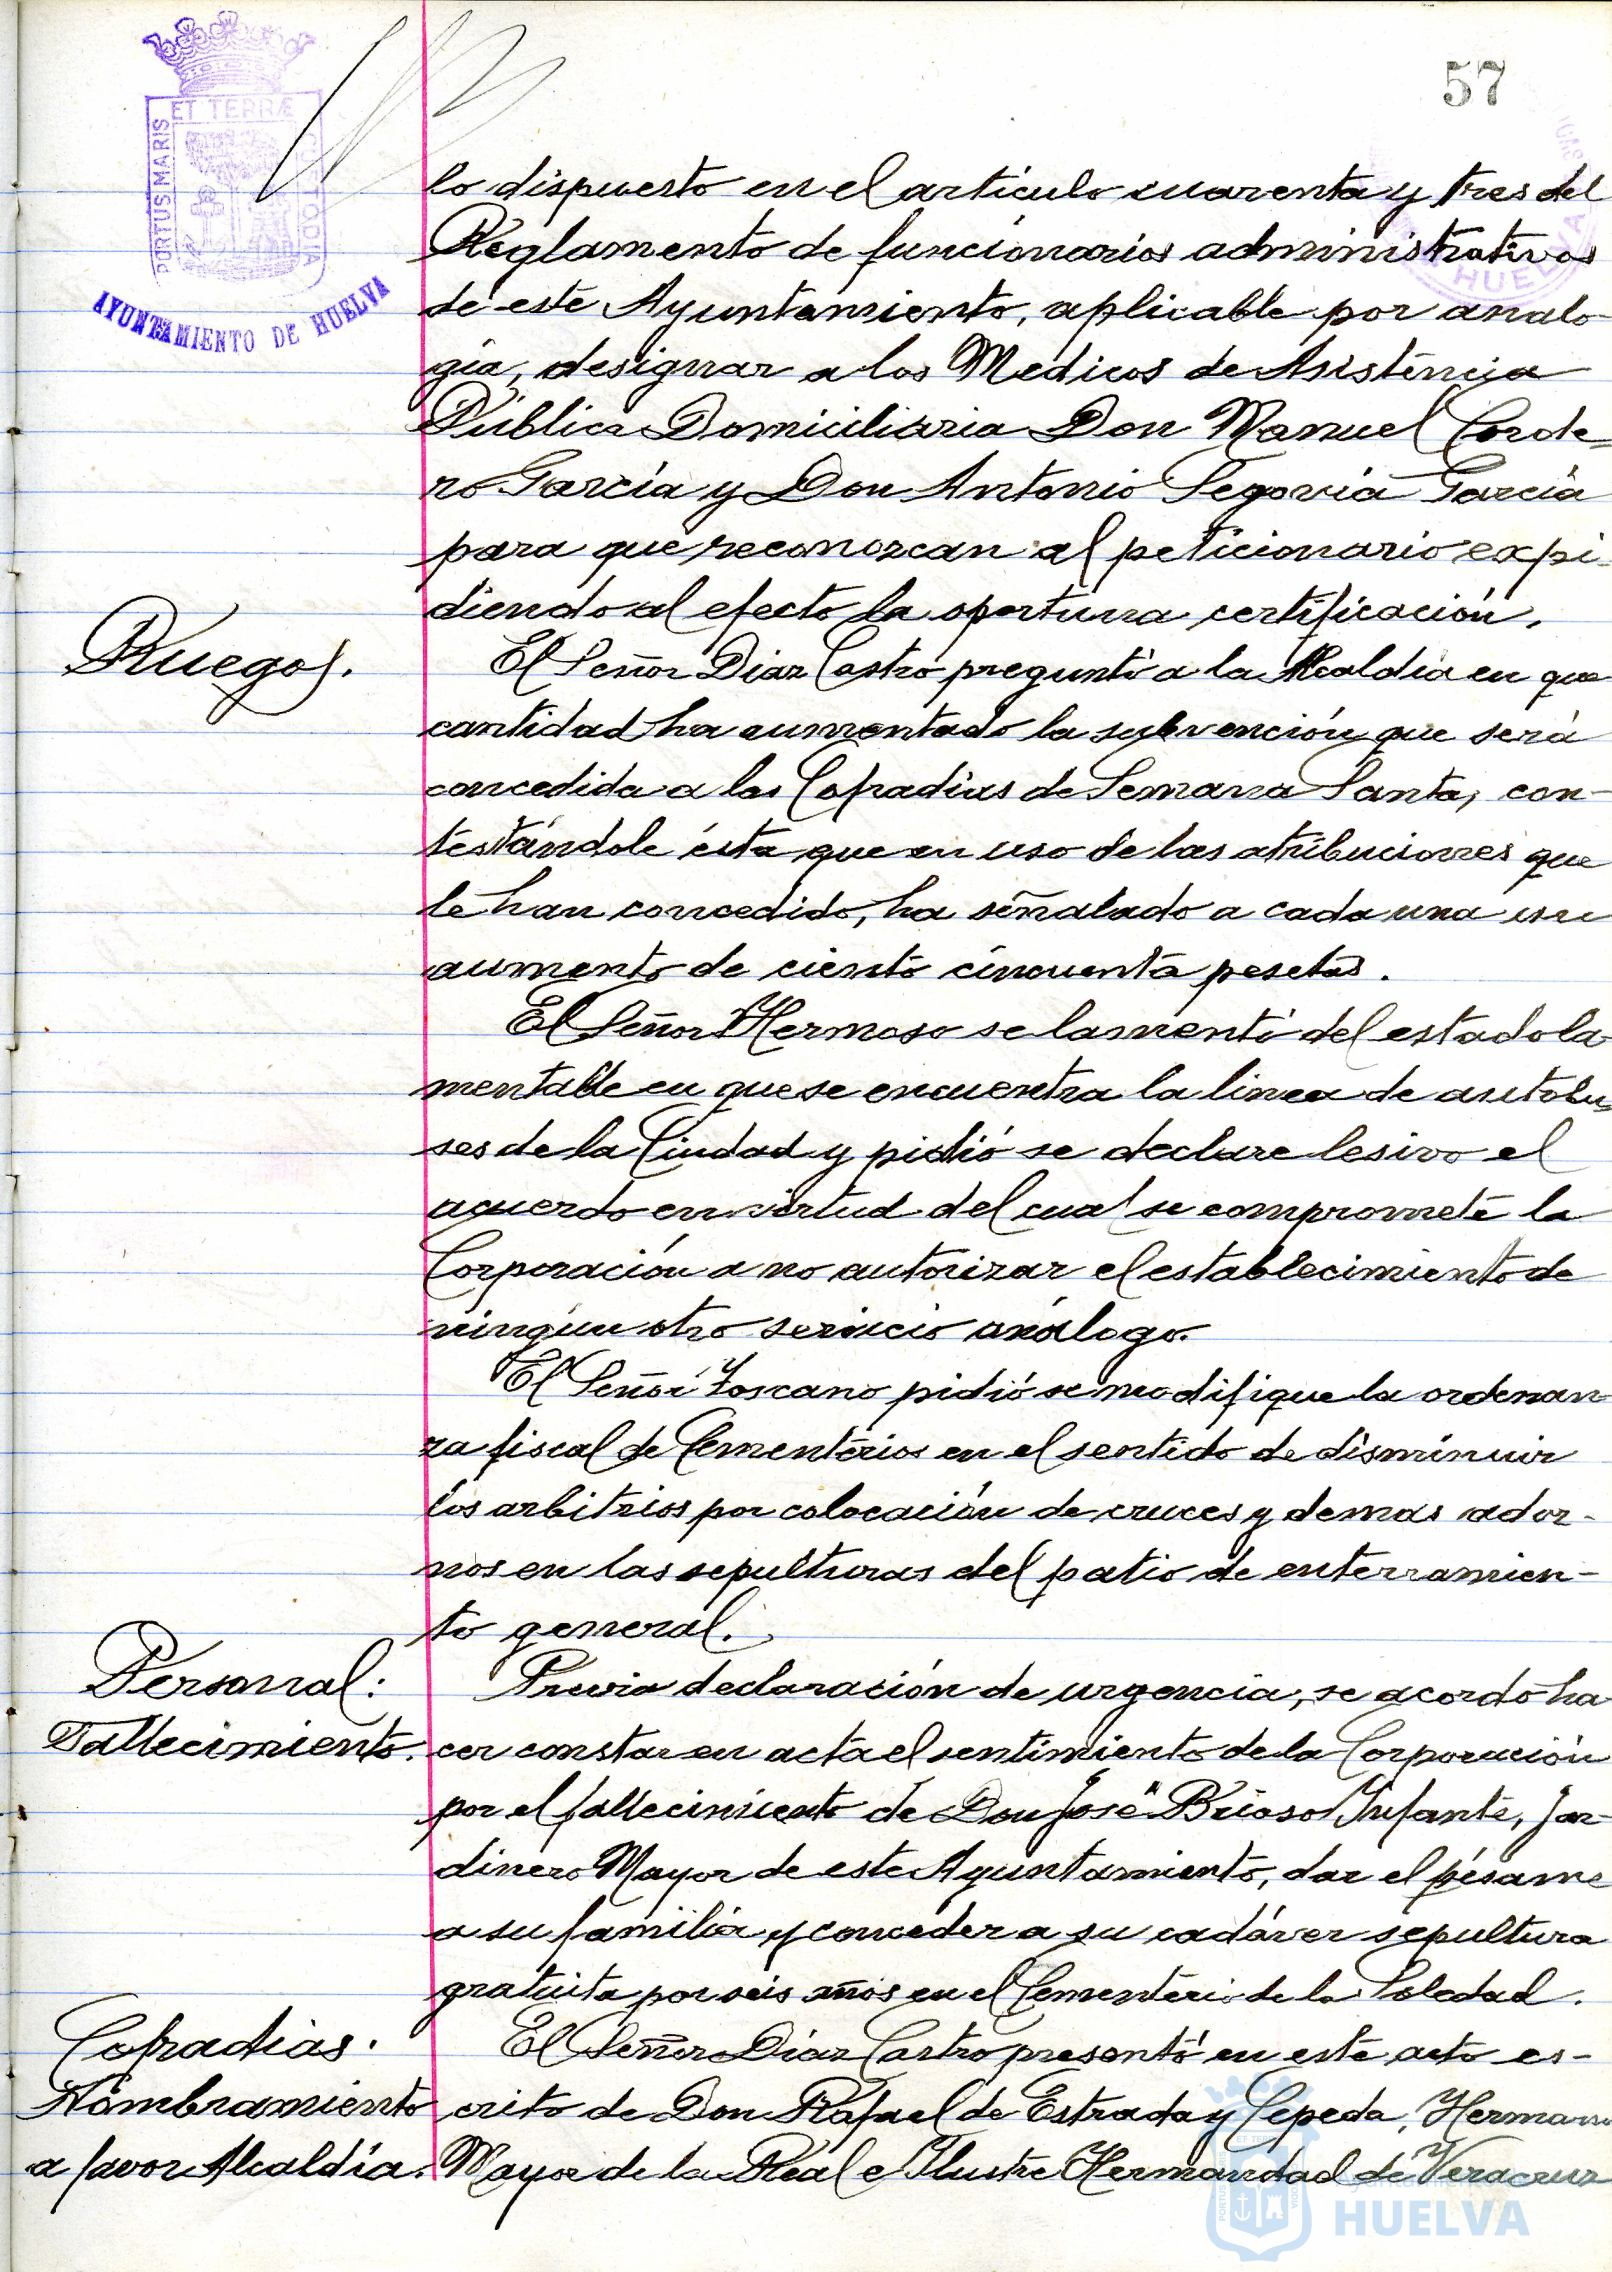 57
ET TERRÆ
PORTUS MARIS
CUSTODIA
AYUNTAMIENTO DE HUELVA
HUELVA
lo dispuesto en el artículo cuarenta y tres del
Reglamento de funcionarios administrativos
de este Ayuntamiento, aplicable por analo-
gía, designar a los Medicos de Asistencia
Pública Domiciliaria Don Manuel Corde-
ro García y Don Antonio Segovia García
para que reconozcan al peticionario expi-
diendo al efecto la oportuna certificación.
Ruegos.
El Señor Diaz Castro preguntó a la Alcaldía en que
cantidad ha aumentado la subvención que será
concedida a las Cofradías de Semana Santa, con-
testándole ésta que en uso de las atribuciones que
le han concedido, ha señalado a cada una un
aumento de ciento cincuenta pesetas.
El Señor Hermoso se lamentó del estado la-
mentable en que se encuentra la linea de autobu-
ses de la Ciudad y pidió se declare lesivo el
acuerdo en virtud del cual se compromete la
Corporación a no autorizar el establecimiento de
ningún otro servicio análogo.
El Señor Toscano pidió se modifique la ordenan-
za fiscal de Cementerios en el sentido de disminuir
los arbitrios por colocación de cruces y demas ador-
nos en las sepulturas del patio de enterramien-
to general.
Personal:
Fallecimiento.
Previa declaración de urgencia, se acordó ha-
cer constar en acta el sentimiento de la Corporación
por el fallecimiento de Don José Brioso Infante, Jar-
dinero Mayor de este Ayuntamiento, dar el pésame
a su familia y conceder a su cadáver sepultura
gratuita por seis años en el Cementerio de la Soledad.
Cofradias.
Nombramiento
a favor Alcaldía.
El Señor Díaz Castro presentó en este acto es-
crito de Don Rafael de Estrada y Cepeda, Hermano
Mayor de la Real e Ilustre Hermandad de Veracruz
Ayuntamiento
HUELVA